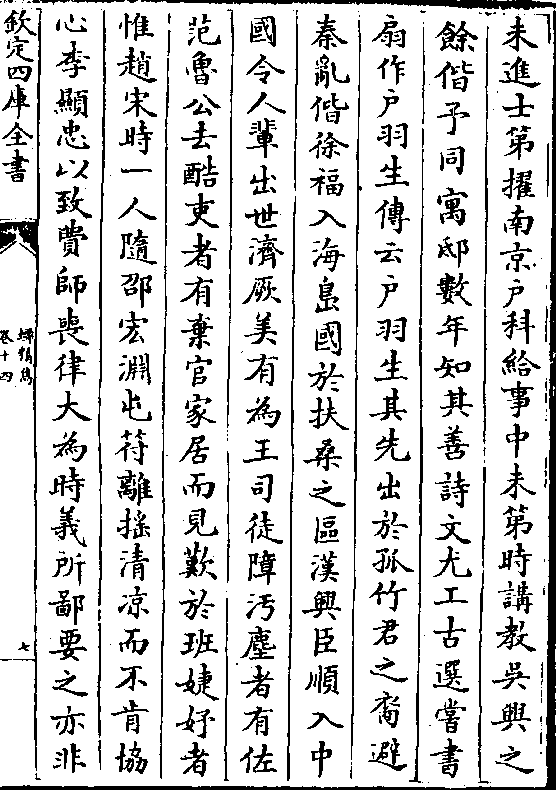 未進士第擢南京户科給事中未第時講教吳興之
餘偕予同寓邸數年知其善詩文尤工古選嘗書
扇作户羽生傳云户羽生其先出於孤竹君之裔避
秦亂偕徐福入海島國於扶桑之區漢興臣順入中
國令人輩出世濟厥美有為王司徒障汚塵者有佐
范魯公去酷吏者有棄官家居而見歎於班婕妤者
惟趙宋時一人隨邵宏淵屯符離揺清凉而不肯協
心李顯忠以致費師喪律大為時義所鄙要之亦非
欽定四庫全書
蟫精雋
卷十四
七